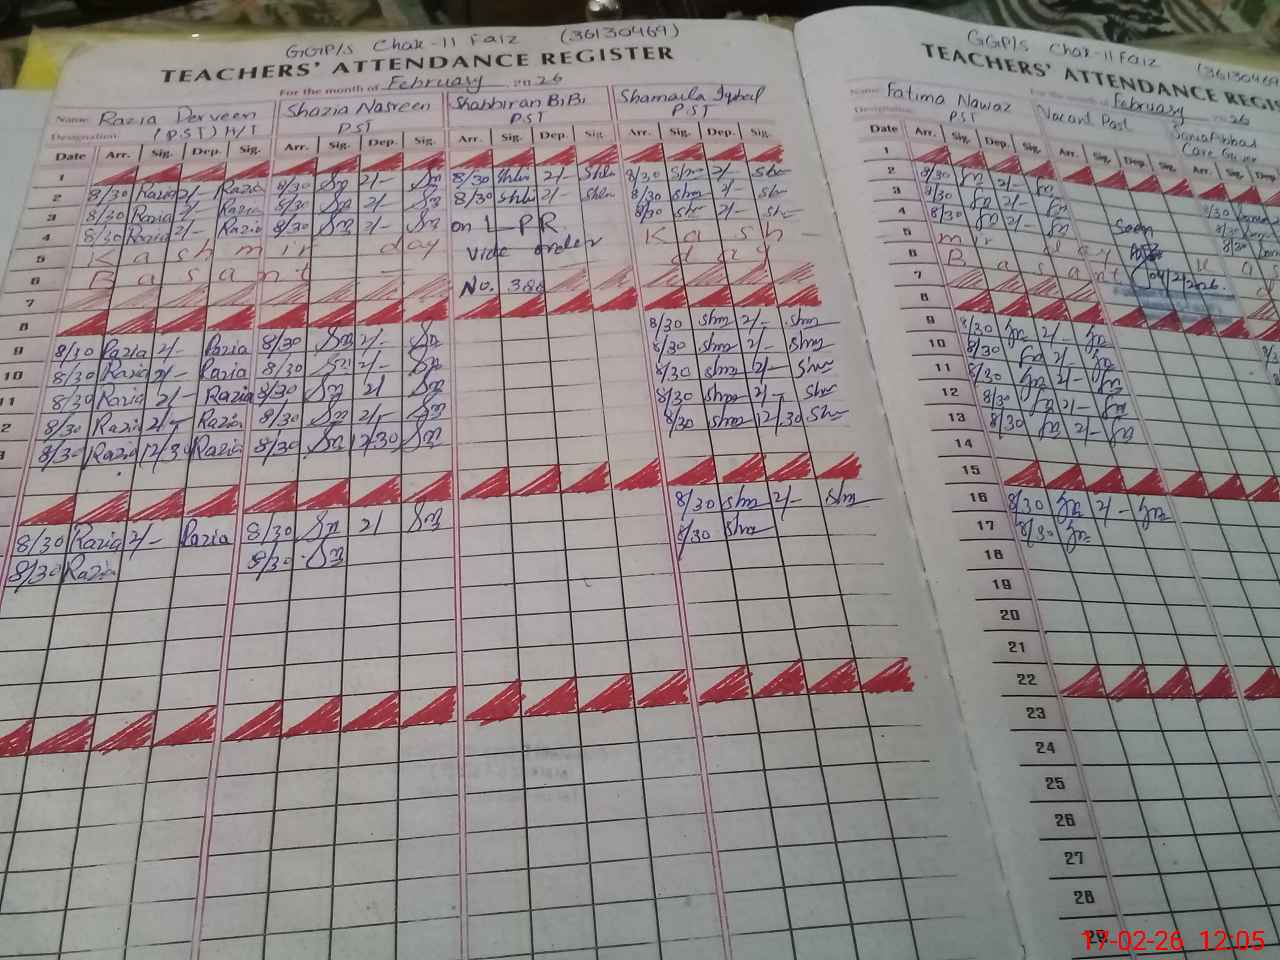 GGPIS Chak-11 Faiz (36130469)
TEACHERS' ATTENDANCE REGISTER
For the month of February 2026
Name Razia Perveen Shazia Nasreen Shabbiran BiBi Shamaila Iqbal
Designation (PST) H/T PST PST PST
Date Arr. Sig. Dep. Sig. Arr. Sig. Dep. Sig. Arr. Sig. Dep. Sig. Arr. Sig. Dep. Sig.
1
2 8/30 Razia 2/- Razia 8/30 Sn 2/- Sn 8/30 Shbi 2/- Shbi 8/30 Shm 2/- Shm
3 8/30 Razia 2/- Razia 8/30 Sn 2/- Sn 8/30 Shbi 2/- Shbi 8/30 Shm 2/- Shm
4 8/30 Razia 2/- Razia 8/30 Sn 2/- Sn on LPR 8/30 Shm 2/- Shm
5 Kashmir day Vide order Kash
6 Basant No. 388 day
7
8
9 8/30 Razia 2/- Razia 8/30 Sn 2/- Sn 8/30 Shm 2/- Shm
10 8/30 Razia 2/- Razia 8/30 Sn 2/- Sn 8/30 Shm 2/- Shm
11 8/30 Razia 2/- Razia 8/30 Sn 2/- Sn 8/30 Shm 2/- Shm
2 8/30 Razia 2/- Razia 8/30 Sn 2/- Sn 8/30 Shm 2/- Shm
8/30 Razia 12/30 Razia 8/30 Sn 12/30 Sn 8/30 Shm 12/30 Shm
8/30 Razia 2/- Razia 8/30 Sn 2/- Sn 8/30 Shm 2/- Shm
8/30 Razia 8/30 Sn 8/30 Shm
GGPIS Chak-11 Faiz (36130469
TEACHERS' ATTENDANCE REGIS
For the month of February 2026
Name Fatima Nawaz Vacant Post
Designation PST Care Giver
Date Arr. Sig. Dep. Sig. Arr. Sig. Dep. Sig. Arr. Sig. Dep.
1
2 8/30 fn 2/- fn
3 8/30 fn 2/- fn 8/30
4 8/30 fn 2/- fn Seen 8/30
5 mir day Kas
6 Basant 04/2/2026. d
7
8
9 8/30 fn 2/- fn
10 8/30 fn 2/- fn
11 8/30 fn 2/- fn
12 8/30 fn 2/- fn
13 8/30 fn 2/- fn
14
15
16 8/30 fn 2/- fn
17 8/30 fn
18
19
20
21
22
23
24
25
26
27
28
29
17-02-26 12:05